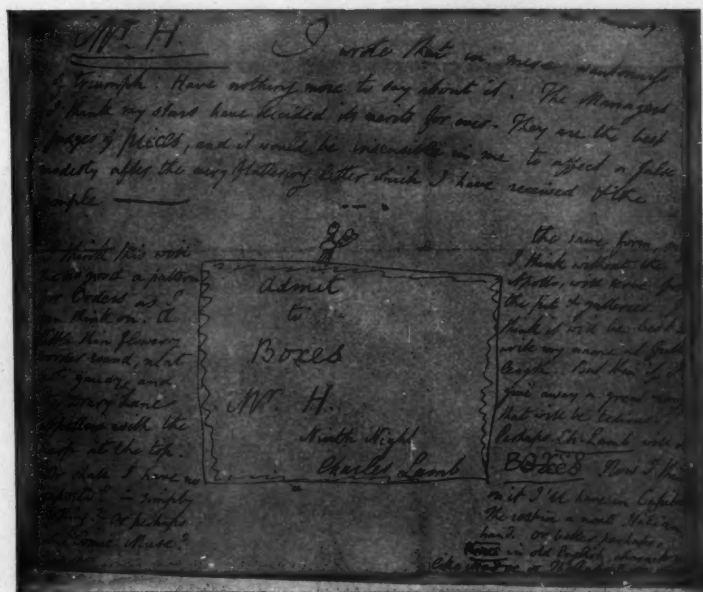 Mr. H.
I wrote that in mere wantonness
of triumph. Have nothing more to say about it. The Managers
I thank my stars have decided its merits for ever. They are the best
judges of pieces, and it would be insensible in me to affect a false
modesty after the very flattering letter which I have received & the
ample
I think this wod
be as good a pattern
for Orders as I
can think on. A
little thin flowery
border round, neat
not gaudy, and
the Drury Lane
Apollo with the
harp at the top.
Or shall I have no
Apollo? — simply
nothing? Or perhaps
the Comic Muse?
Admit
to
Boxes
Mr. H.
Ninth Night
Charles Lamb
the same form, only
I think without the
Apollo, will serve for
the pit & galleries.
think it will be best to
write my name at full
length. But then if I
give away a great many
that will be tedious.
Perhaps Ch. Lamb will do
BOXES now I think
on it I'll have in Capitals
The rest in a neat Italian
hand. Or better perhaps,
in old English character
like